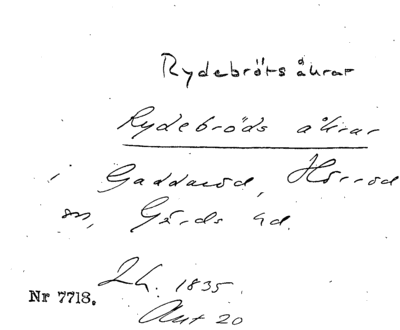 Rydebröts åkrar
Rydebröds åkrar
i Gaddaröd, Hörröd
sn, Gärds hd.
Lh. 1835.
Nr 7718.
Akt 20